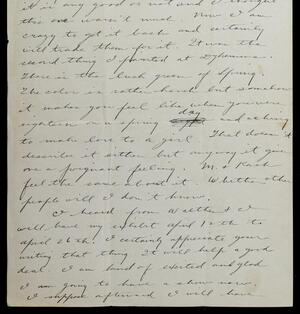 it is any good or not and I thought
this one wasn't much. Now I am
crazy to get it back and certainly
will trade them for it. It was the
second thing I painted at
There is the lush green of Spring.
The color is rather harsh but somehow
it makes you feel like when you were
eighteen on a spring day and aching
to make love to a girl. That doesn't
describe it either but anyway it gives
one a poignant feeling. Kash
feel the same about it. Whether other
people will I don't know.
I heard from Walther &. I
will have my exhibit April 10th to
April 26th. I certainly appreciate your
writing that thing. It will help a good
deal. I am kind of excited and glad
I am going to have a show now.
I suppose afterward I will have